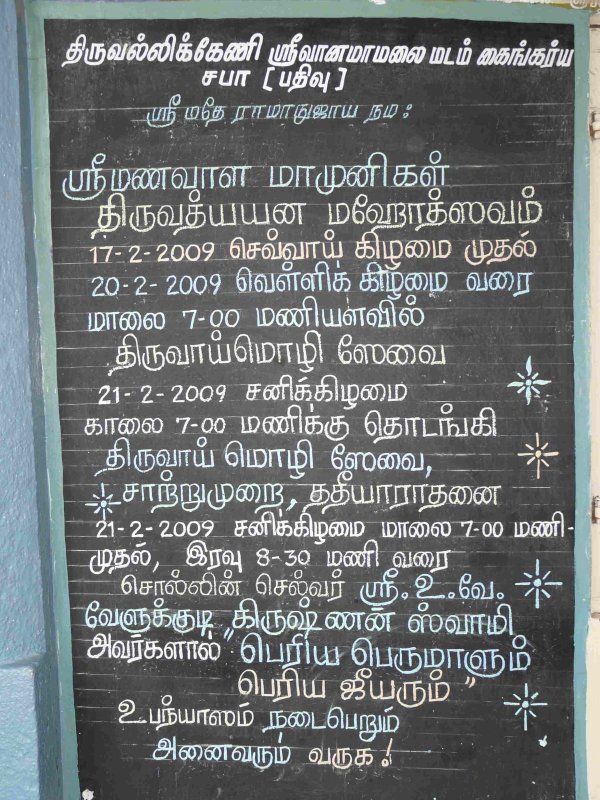 திருவல்லிக்கேணி ஸ்ரீவானமாமலை மடம் கைங்கர்ய
சபா [பதிவு]
ஸ்ரீ மதே ராமாநுஜாய நம:
ஸ்ரீமணவாள மாமுனிகள்
திருவத்யயன மஹோத்ஸவம்
17-2-2009 செவ்வாய் கிழமை முதல்
20-2-2009 வெள்ளிக் கிழ்மை வரை
மாலை 7-00 மணியளவில்
திருவாய்மொழி ஸேவை
21-2-2009 சனிக்கிழமை
காலை 7-00 மணிக்கு தொடங்கி
திருவாய் மொழி ஸேவை,
சாற்றுமுறை, ததீயாராதனை
21-2-2009 சனிக்கிழமை மாலை 7-00 மணி-
முதல், இரவு 8-30 மணி வரை
சொல்லின் செல்வர் ஸ்ரீ.உ.வே.
வேளுக்குடி கிருஷ்ணன் ஸ்வாமி
அவர்களால் "பெரிய பெருமாளும்
பெரிய ஜீயரும்"
உபந்யாஸம் நடைபெறும்
அனைவரும் வருக!